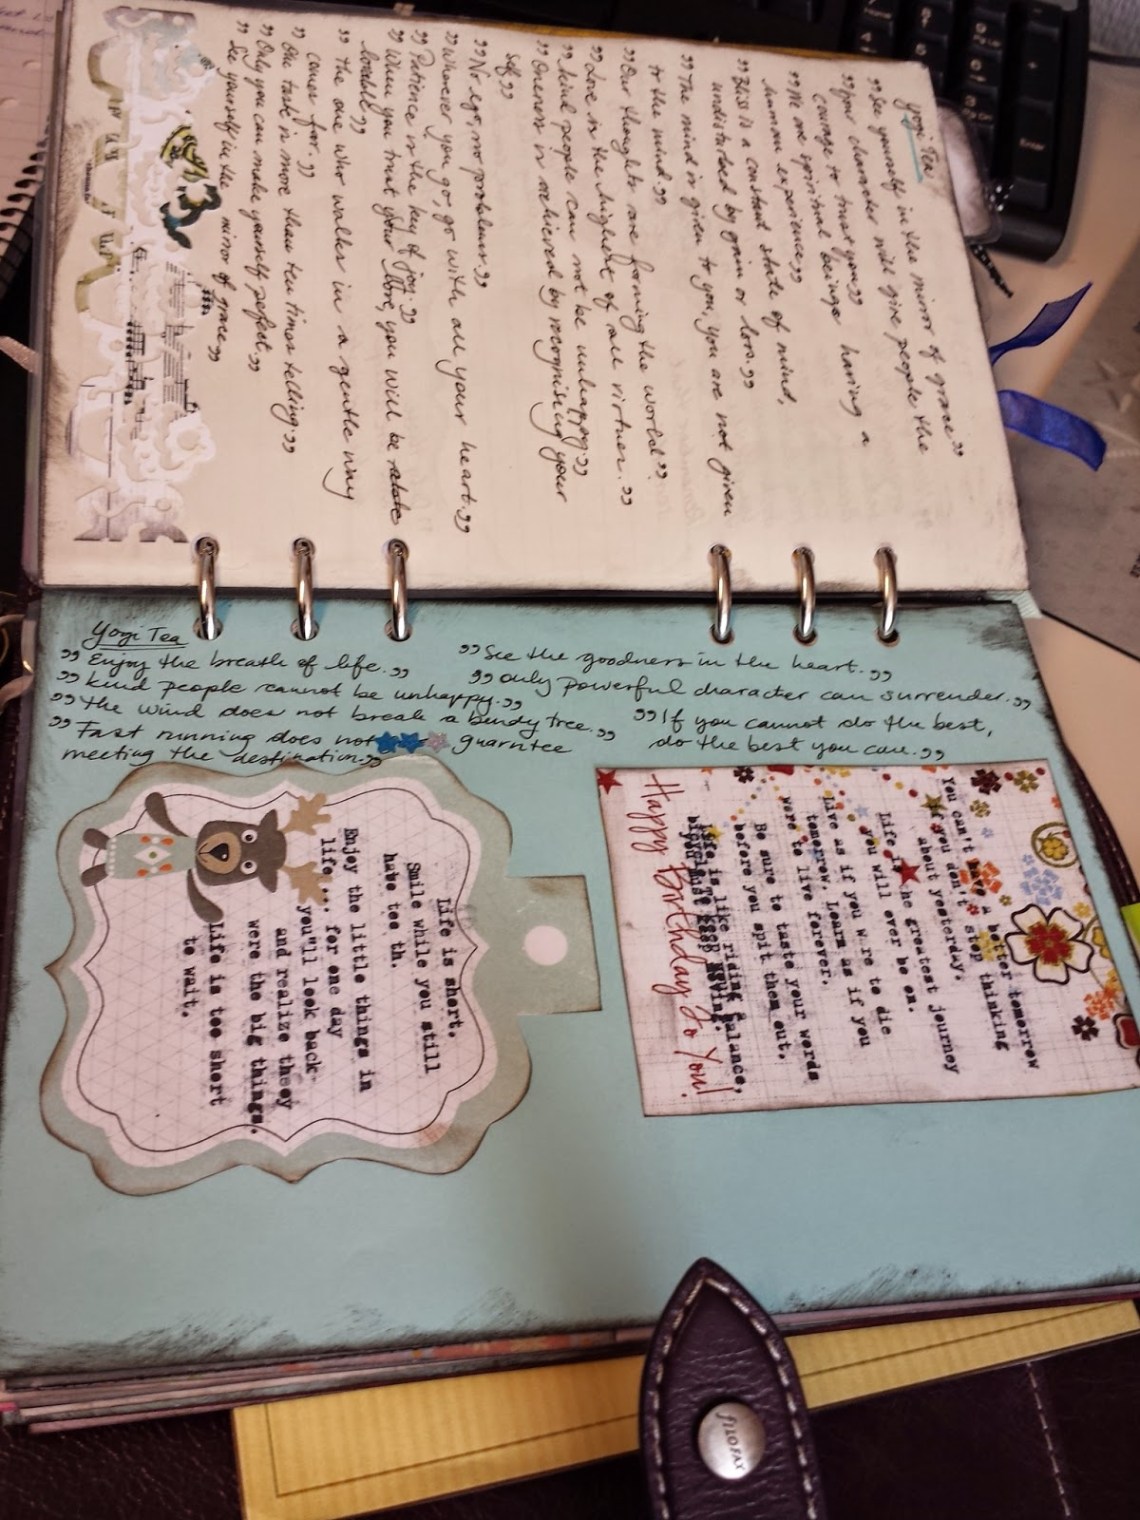 Yogi Tea
„See yourself in the mirror of grace”
„Your character will give people the
courage to trust you”
„We are spiritual beings having a
human experience”
„Bliss is a constant state of mind,
undisturbed by gain or loss.”
„The mind is given to you, you are not given
to the mind”
„Our thoughts are forming the world”
„Love is the highest of all virtues.”
„kind people can not be unhappy”
„Oneness is achieved by recognising your
self”
„No ego, no problems”
„Wherever you go, go with all your heart.”
„Patience is the key of joy.”
„When you trust your
lovable”
„The one who walks in a gentle way
comes far.”
„One task is more than ten times telling”
„Only you can make yourself perfect.”
„See yourself in the mirror of grace”
Yogi Tea
„Enjoy the breath of life.”
„kind people cannot be unhappy.”
„the wind does not break a bendy tree.”
„Fast running does not guarntee
meeting the destination.”
„See the goodness in the heart.”
„only powerful character can surrender.”
„If you cannot do the best,
do the best you can.”
You can't have a better tomorrow
if you don't stop thinking
about yesterday.
Life is the greatest journey
you will ever be on.
Live as if you were to die
tomorrow. Learn as if you
were to live forever.
Be sure to taste your words
before you spit them out.
Life is like riding
balance,
keep moving.
Happy Birthday to You!
Life is short.
Smile while you still
have tee th.
Enjoy the little things in
life... for one day
you'll look back
and realize theey
were the big things.
Life is too short
to wait.
filofax
Enter